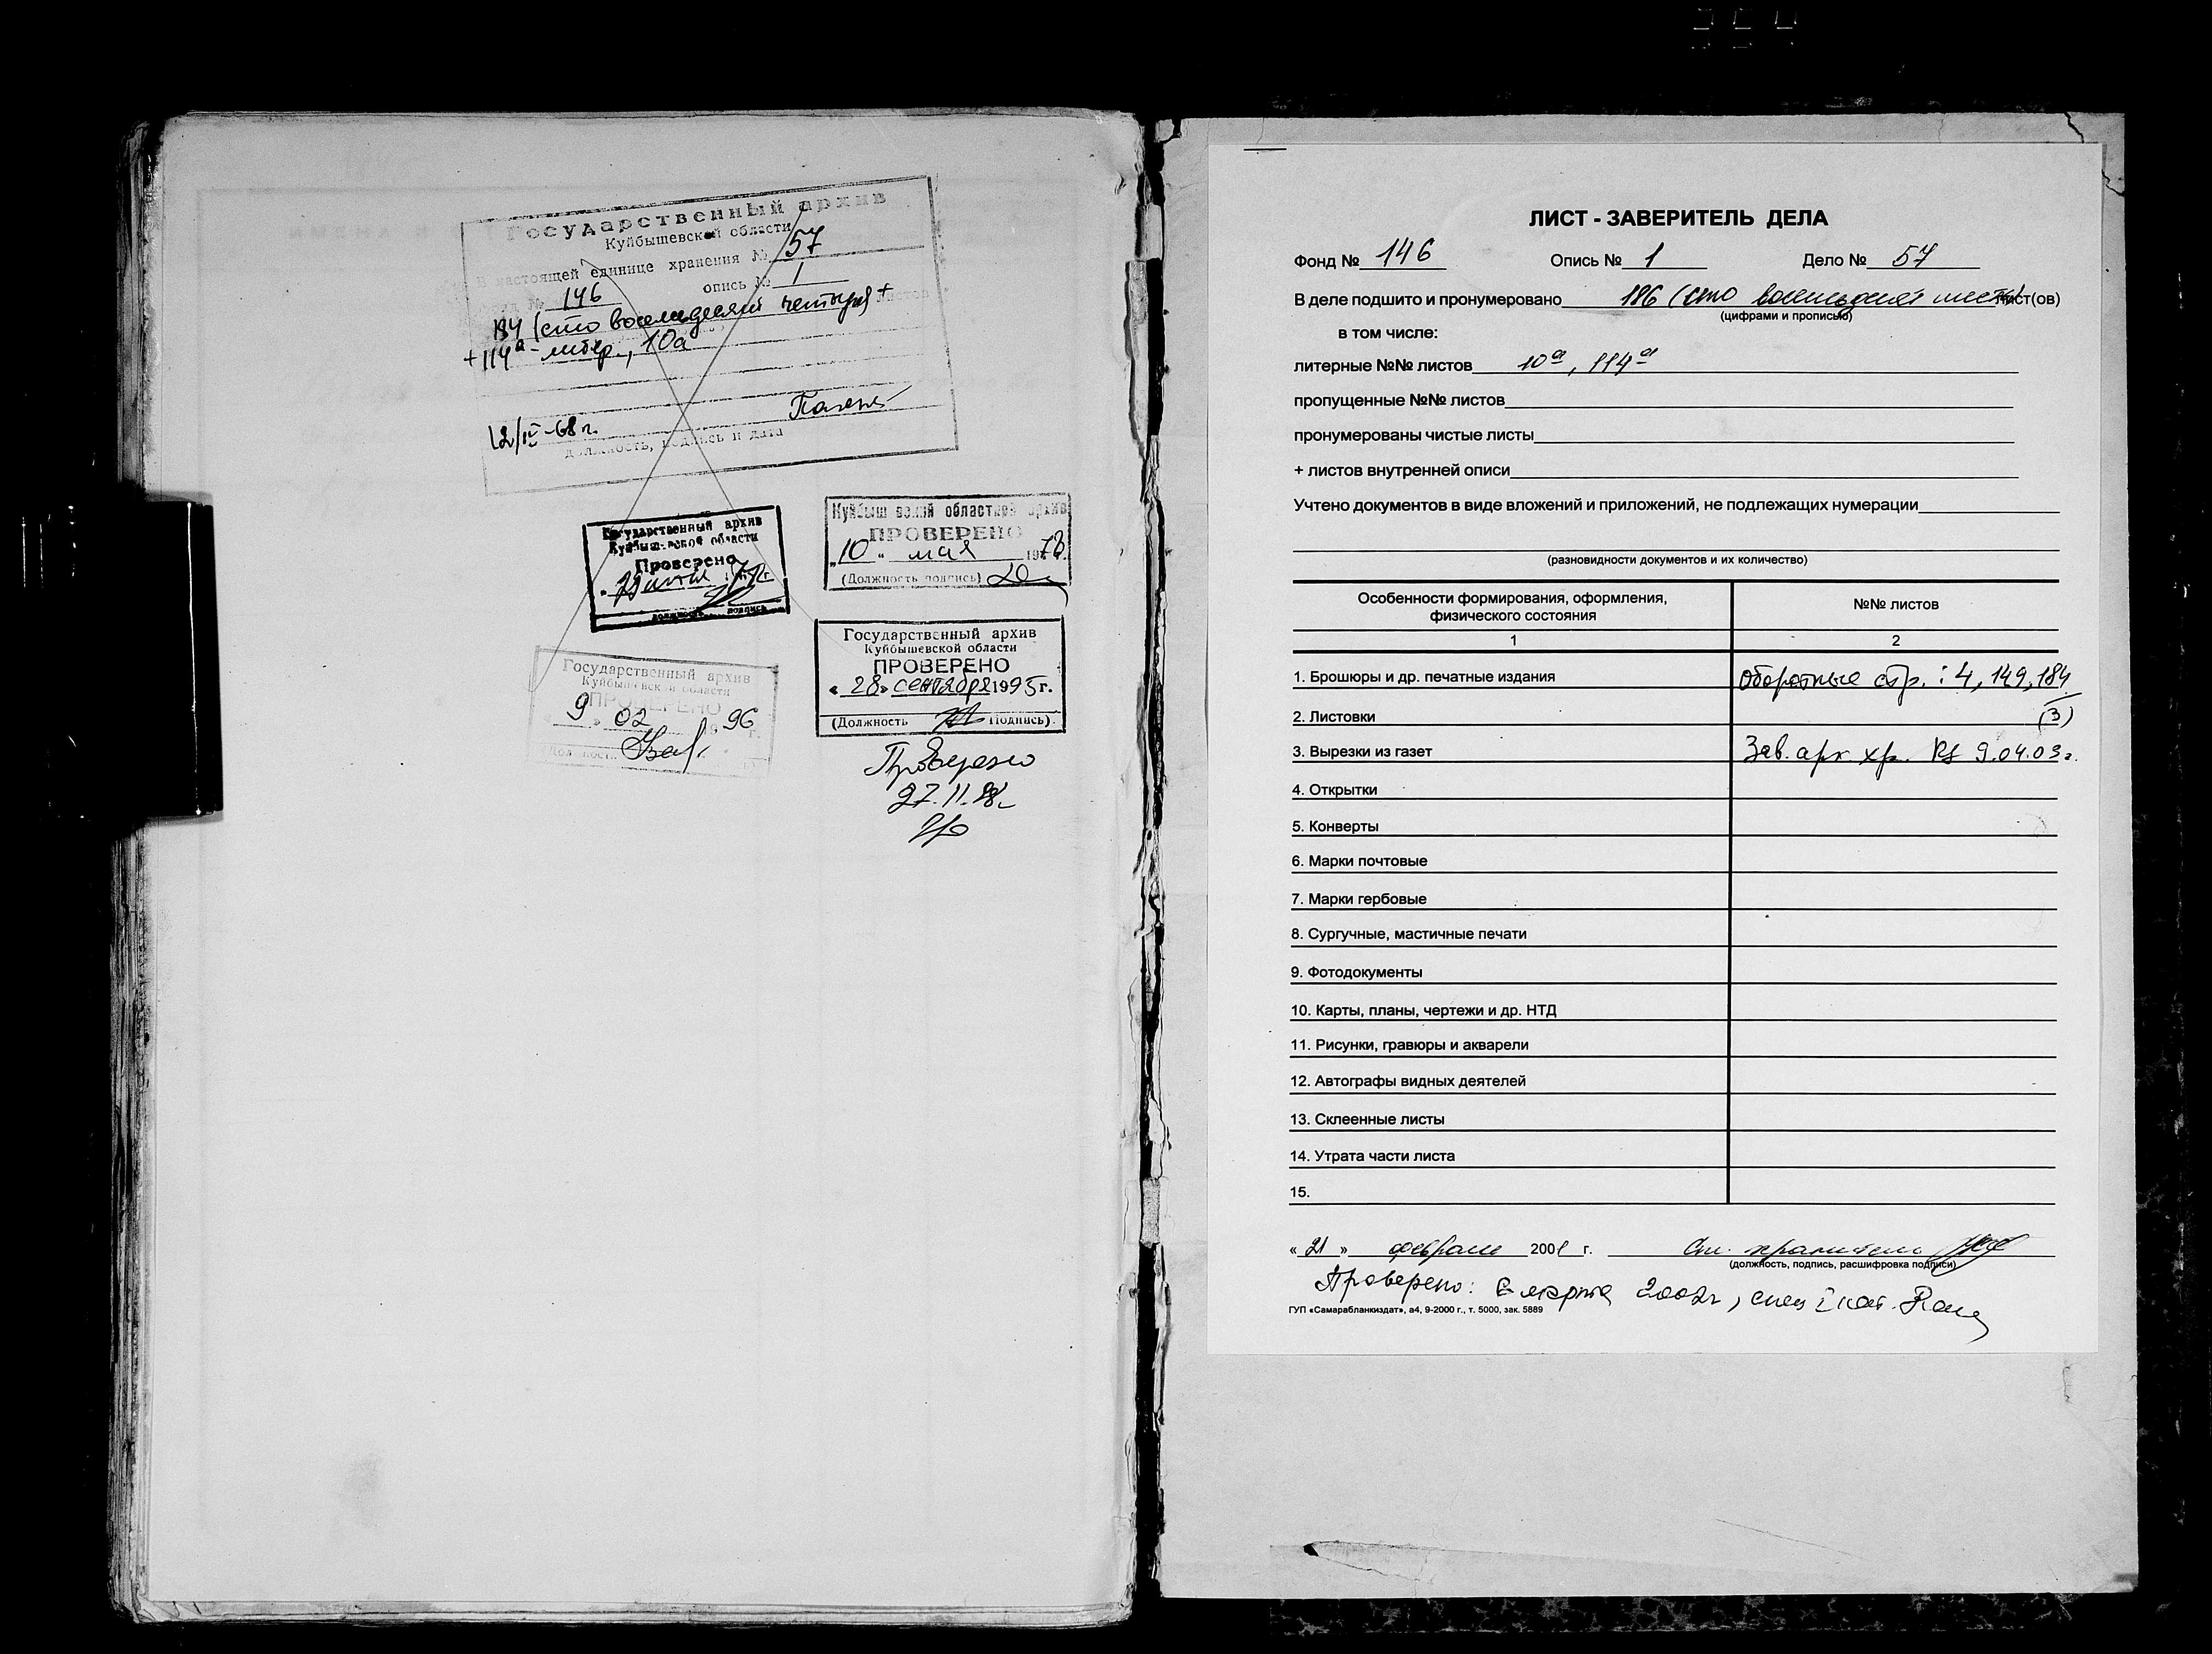 Государственный архив
Куйбышевской области
В настоящей единице хранения № 57
фонд № 146 опись № 1
184 (сто восемьдесят четыре) + листов
+ 114а - литер., 10а
12/IV-68 г.
должность, подпись и дата
Государственный архив
Куйбышевской области
Проверено
должность подпись
Куйбышевский областной архив
ПРОВЕРЕНО
„10" мая 1978.
(Должность подпись)
Государственный архив
Куйбышевской области
ПРОВЕРЕНО
«28» сентября 1995 г.
(Должность Подпись)
Государственный архив
Куйбышевской области
ПРОВЕРЕНО
9 » 02 1996 г.
Проверено
27.11.98г
ЛИСТ - ЗАВЕРИТЕЛЬ ДЕЛА
Фонд № 146 Опись № 1 Дело № 57
В деле подшито и пронумеровано 186 (сто восемьдесят шесть) лист(ов)
(цифрами и прописью)
в том числе:
литерные №№ листов 10а, 114а
пропущенные №№ листов
пронумерованы чистые листы
+ листов внутренней описи
Учтено документов в виде вложений и приложений, не подлежащих нумерации
(разновидности документов и их количество)
Особенности формирования, оформления, физического состояния №№ листов
1 2
1. Брошюры и др. печатные издания Оборотные стр.: 4, 149, 184
2. Листовки (3)
3. Вырезки из газет Зав. арх. хр. 9.04.03 г.
4. Открытки
5. Конверты
6. Марки почтовые
7. Марки гербовые
8. Сургучные, мастичные печати
9. Фотодокументы
10. Карты, планы, чертежи и др. НТД
11. Рисунки, гравюры и акварели
12. Автографы видных деятелей
13. Склеенные листы
14. Утрата части листа
15.
« 21 » февраля 2001 г. Ст. хранитель
(должность, подпись, расшифровка подписи)
Проверено: 6 марта 2002г, спец I кат.
ГУП «Самарабланкиздат», а4, 9-2000 г., т. 5000, зак. 5889